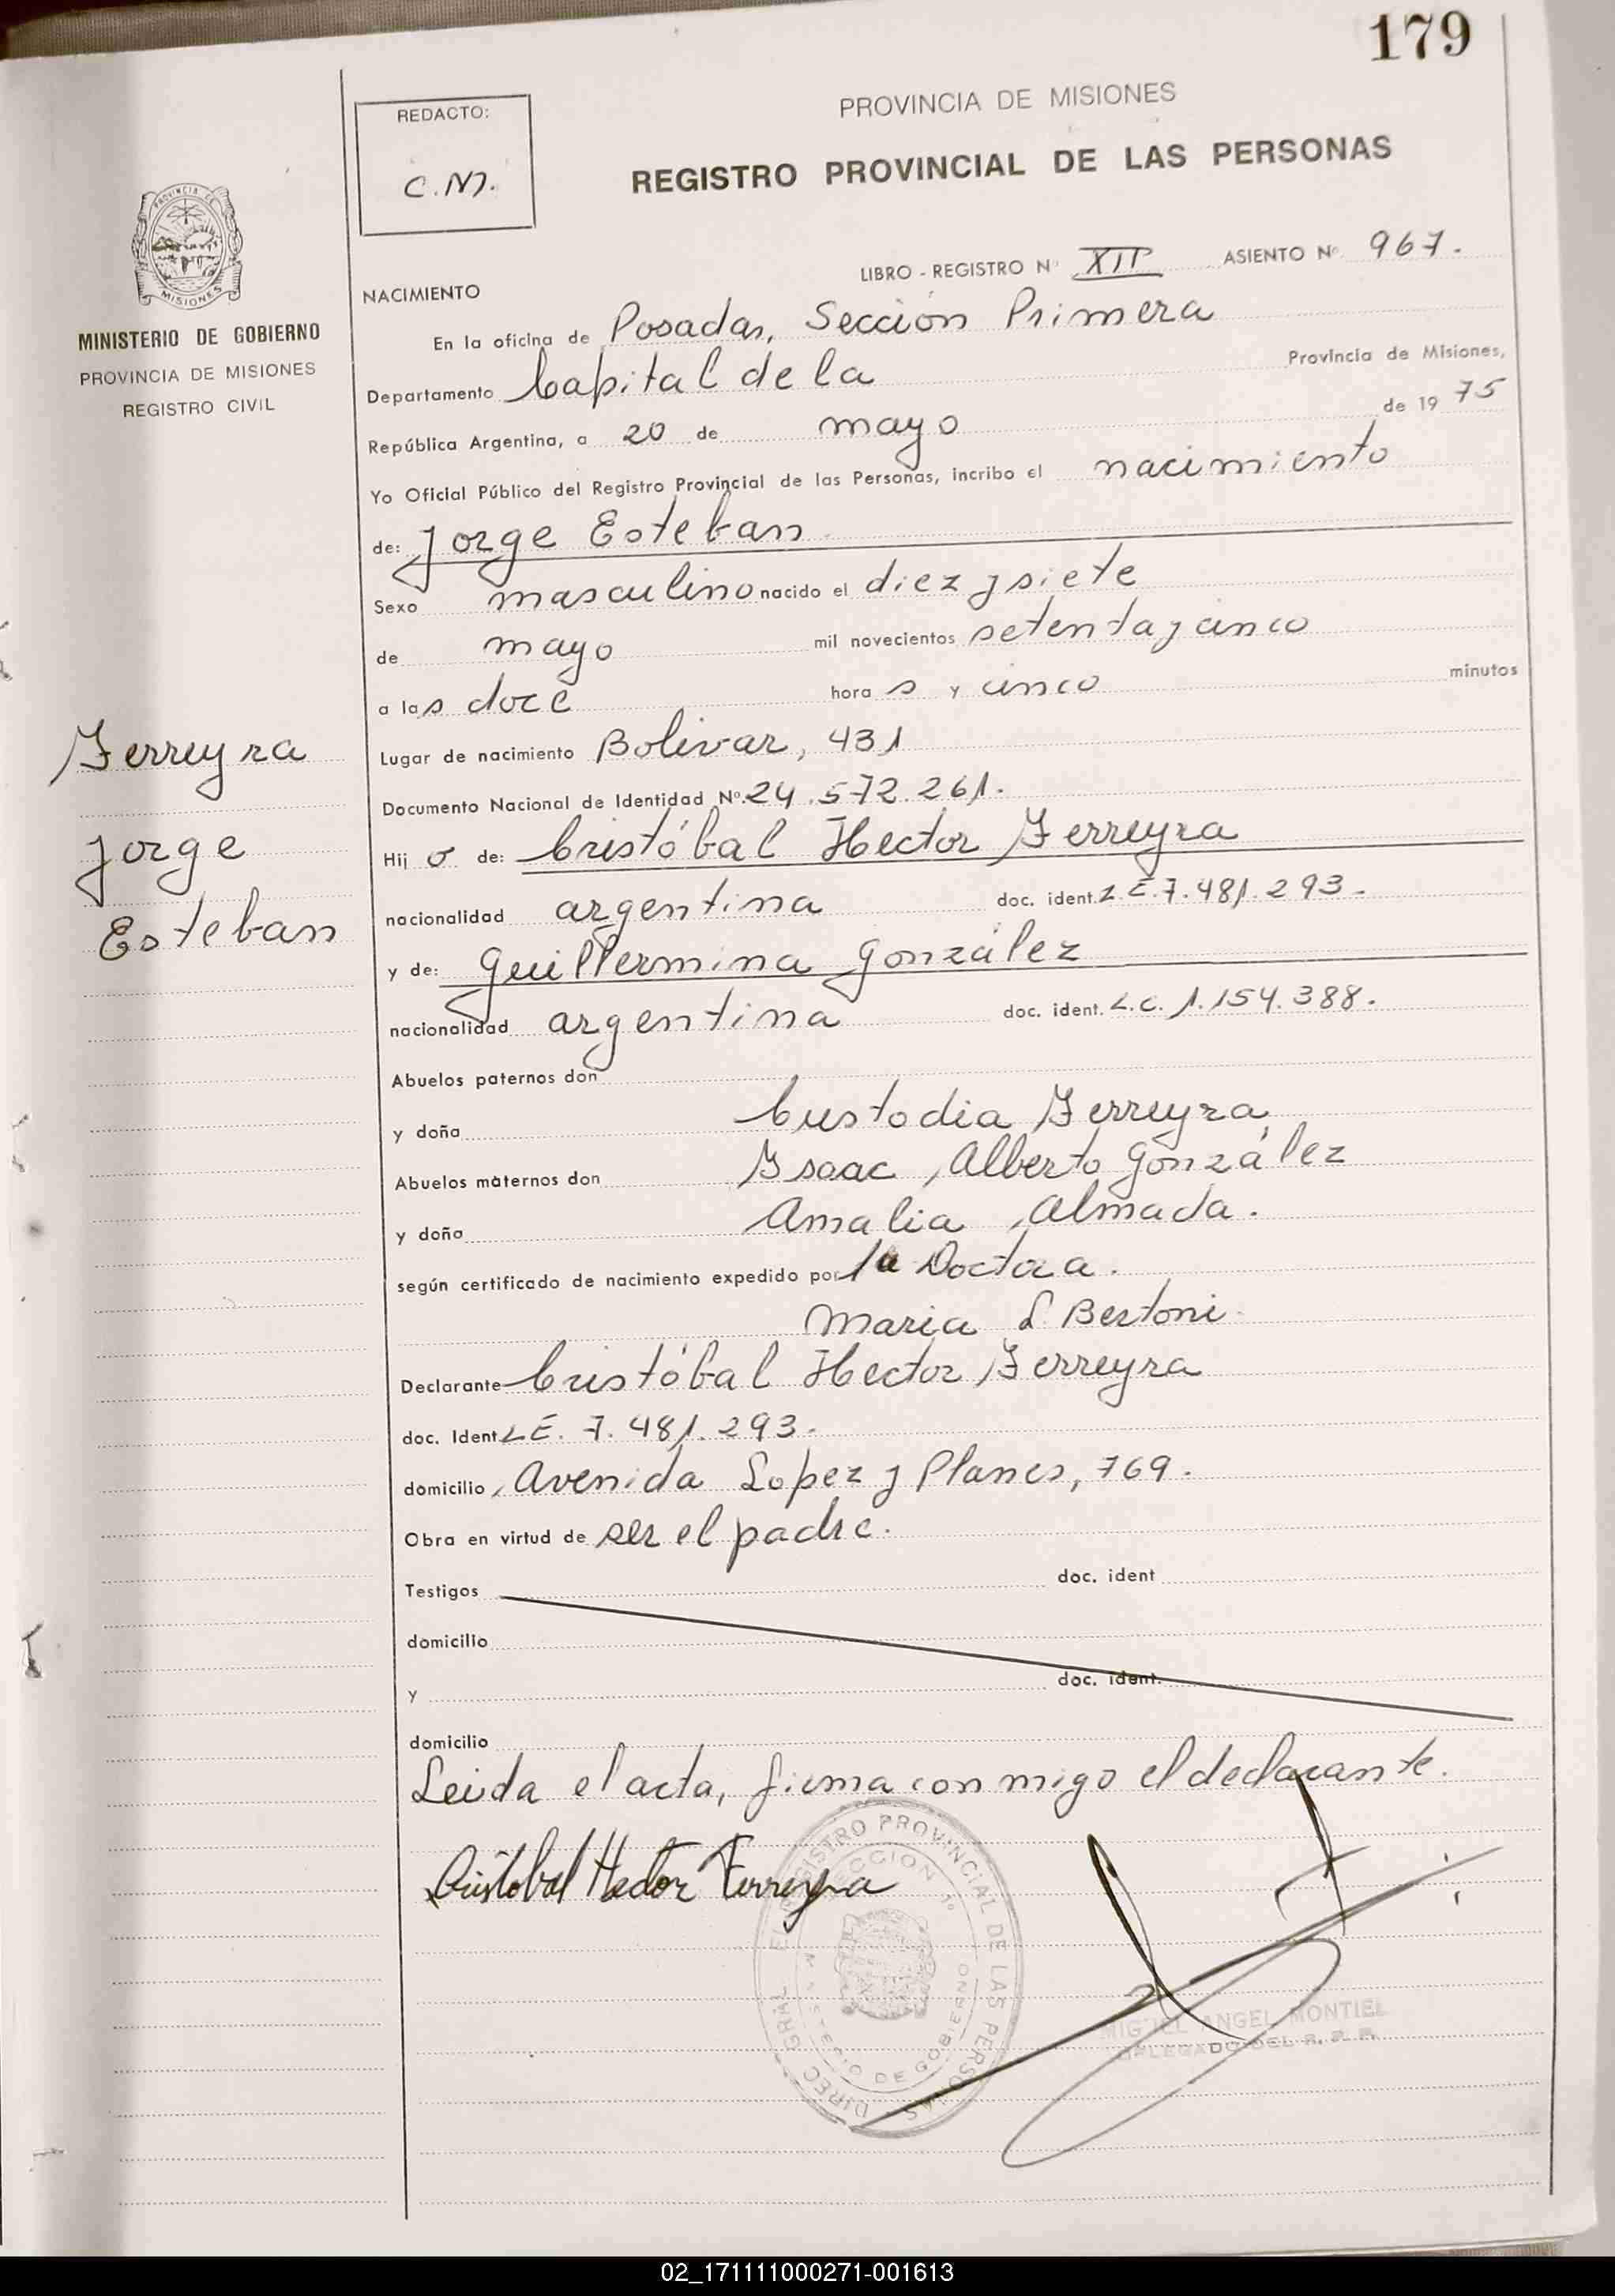 179
REDACTO:
C.M.
PROVINCIA DE MISIONES
REGISTRO PROVINCIAL DE LAS PERSONAS
PROVINCIA DE
MISIONES
MINISTERIO DE GOBIERNO
PROVINCIA DE MISIONES
REGISTRO CIVIL
LIBRO - REGISTRO Nº XIIº ASIENTO Nº 967.
NACIMIENTO
En la oficina de Posadas, Sección Primera
Departamento Capital de la Provincia de Misiones,
República Argentina, a 20 de mayo de 1975
Yo Oficial Público del Registro Provincial de las Personas, incribo el nacimiento
de: Jorge Esteban
Sexo masculino nacido el diez y siete
de mayo mil novecientos setenta y cinco
a las doce horas y cinco minutos
Lugar de nacimiento Bolivar, 431
Documento Nacional de Identidad Nº 24.572.261.
Hijo de: Cristóbal Hector Ferreyra
nacionalidad argentina doc. ident. L.E. 7.481.293.
y de: Guillermina González
nacionalidad argentina doc. ident. L.C. 1.154.388.
Abuelos paternos don
y doña Custodia Ferreyra,
Abuelos maternos don Isaac Alberto González
y doña Amalia Almada.
según certificado de nacimiento expedido por la Doctora.
Maria L Bertoni.
Declarante Cristóbal Hector Ferreyra
doc. Ident L.E. 7.481.293.
domicilio Avenida Lopez y Planes, 769.
Obra en virtud de ser el padre.
Testigos doc. ident
domicilio
y doc. ident.
domicilio
Leida el acta, firma con migo el declarante.
Cristobal Hector Ferreyra
Ferreyra
Jorge
Esteban
DIREC GRAL EL REGISTRO PROVINCIAL DE LAS PERSONAS
SECCION 1º
MINISTERIO DE GOBIERNO
MIGUEL ANGEL MONTIEL
DELEGADO DEL R. P. P.
02_171111000271-001613